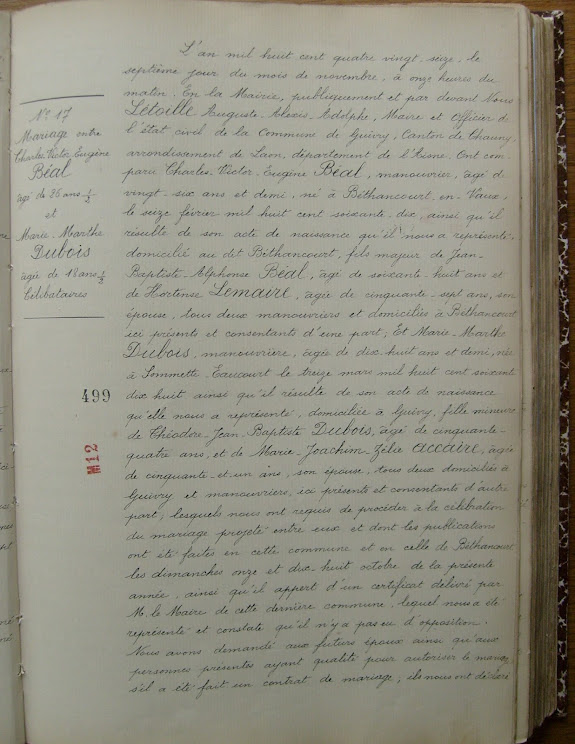 N° 17
Mariage entre
Charles Victor Eugène
Béal
âgé de 26 ans ½
et
Marie-Marthe
Dubois
âgée de 18 ans ½
Célibataires
499
M12
L'an mil huit cent quatre vingt-seize, le
septième jour du mois de novembre, à onze heures du
matin. En la Mairie, publiquement et par devant Nous
Letoille Auguste-Alexis-Adolphe, Maire et Officier de
l'état civil de la Commune de Guivry, Canton de Chauny,
arrondissement de Laon, département de l'Aisne. Ont com-
paru Charles-Victor-Eugène Béal, manouvrier, âgé de
vingt-six ans et demi, né à Béthancourt-en-Vaux,
le seize février mil huit cent soixante-dix, ainsi qu'il
résulte de son acte de naissance qu'il nous a représenté,
domicilié au dit Béthancourt, fils majeur de Jean-
Baptiste-Alphonse Béal, âgé de soixante-huit ans et
de Hortense Lemaire, âgée de cinquante-sept ans, son
épouse, tous deux manouvriers et domiciliés à Béthancourt
ici présents et consentants d'une part; Et Marie-Marthe
Dubois, manouvrière, âgée de dix-huit ans et demi, née
à Sommette-Eaucourt le treize mars mil huit cent soixante
dix huit ainsi qu'il résulte de son acte de naissance
qu'elle nous a représenté, domiciliée à Guivry, fille mineure
de Théodore-Jean-Baptiste Dubois, âgé de cinquante-
quatre ans, et de Marie-Joachim-Zélie Accaire, âgée
de cinquante-et-un ans, son épouse, tous deux domiciliés à
Guivry et manouvriers, ici présents et consentants d'autre
part; lesquels nous ont requis de procéder à la célébration
du mariage projeté entre eux et dont les publications
ont été faites en cette commune et en celle de Béthancourt
les dimanches onze et dix huit octobre de la présente
année, ainsi qu'il appert d'un certificat délivré par
M. le Maire de cette dernière commune, lequel nous a été
représenté et constate qu'il n'y a pas eu d'opposition.
Nous avons demandé aux futurs époux ainsi qu'aux
personnes présentes ayant qualité pour autoriser le mariage
s'il a été fait un contrat de mariage; ils nous ont déclaré